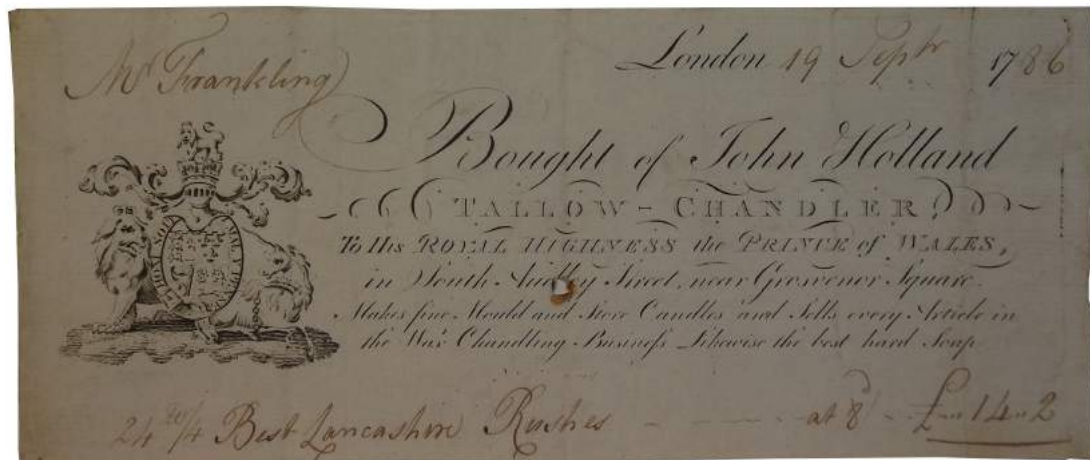 Mr Frankling
London 19 Septr 1786
Bought of John Holland
TALLOW - CHANDLER,
To His ROYAL HIGHNESS the PRINCE of WALES,
in South Audley Street, near Grosvenor Square.
Makes fine Mould and Store Candles and Sells every Article in
the Wax Chandling Busineſs Likewise the best hard Soap
HONI SOIT MAL Y
Best Lancashire Rushes - - - - at 8d - £ " 14 " 2